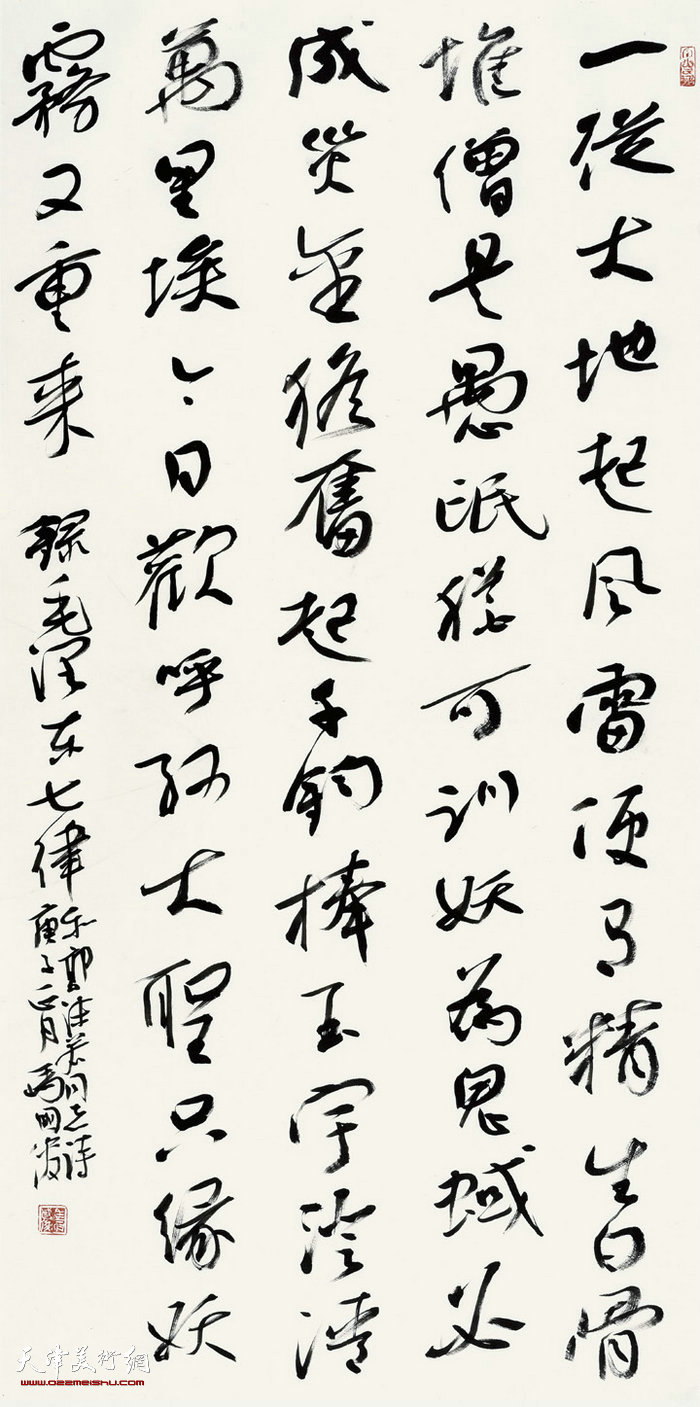 一從大地起风雷便有精生白骨
堆僧是愚氓猶可訓妖為鬼蜮必
成災金猴奮起千鈞棒玉宇澄清
萬里埃今日歡呼孫大聖只緣妖
霧又重来 錄毛澤東七律
和郭沫若同志詩
庚子正月馬
天津美術網
www.022meishu.com